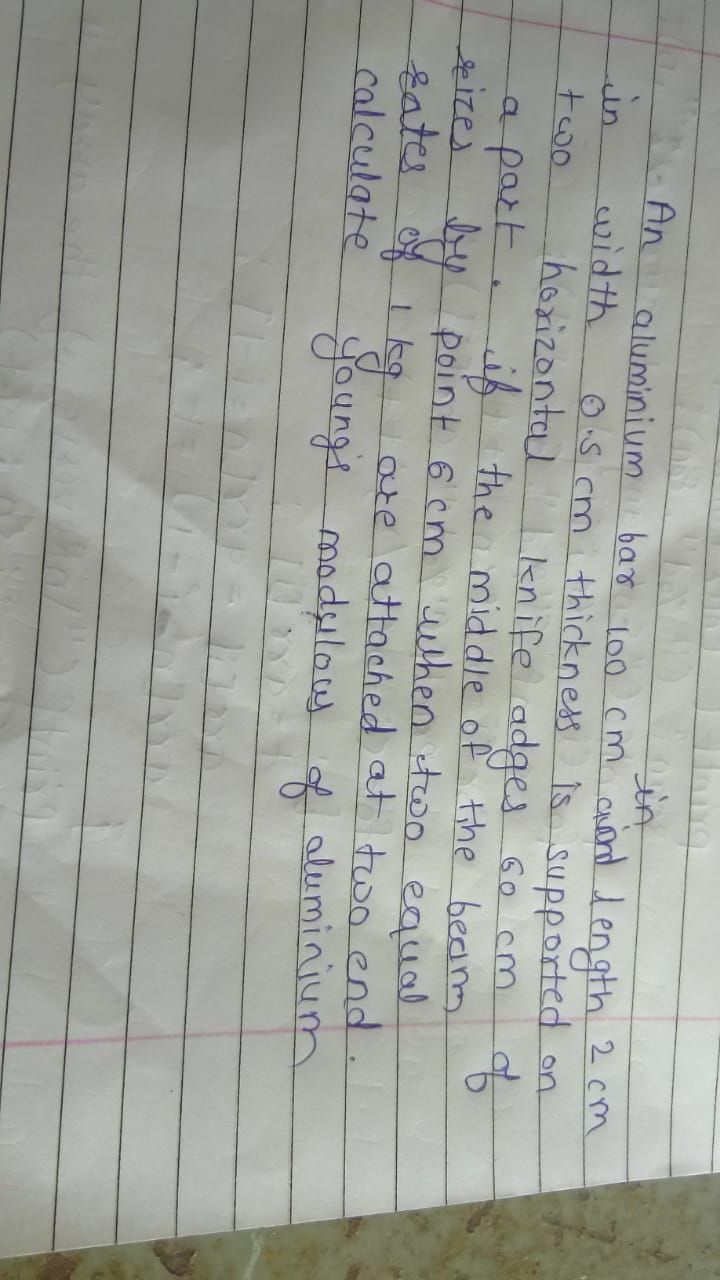 An aluminium bar 100 cm in length 2 cm
in width 0.5 cm thickness is supported on
two horizontal knife adges 60 cm of
apart. if the middle of the beam
rizes by point 6 cm when two equal
of 1 kg are attached at two end.
calculate young's modulous of aluminium